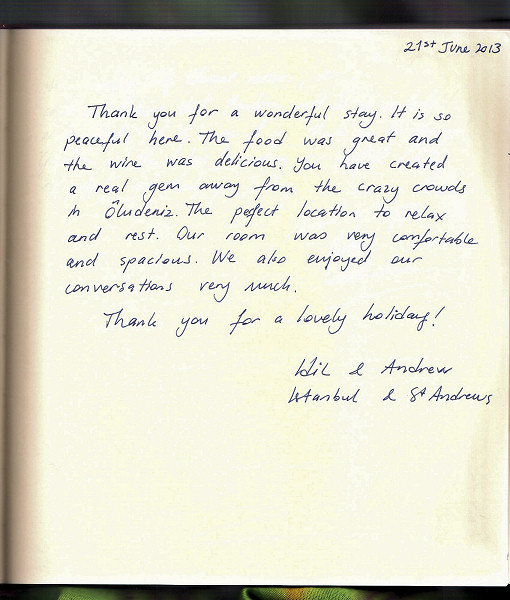 21st June 2013
Thank you for a wonderful stay. It is so
peaceful here. The food was great and
the wine was delicious. You have created
a real gem away from the crazy crowds
in Ölüdeniz. The perfect location to relax
and rest. Our room was very comfortable
and spacious. We also enjoyed our
conversations very much.
Thank you for a lovely holiday!
& Andrew
Istanbul & St Andrews